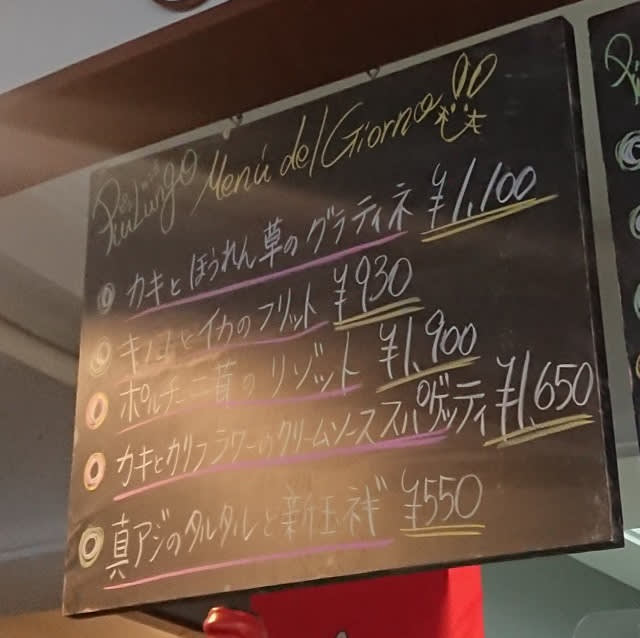 PiuLungo Menú del Giorno!!
カキとほうれん草のグラティネ ¥1,100
キノコとイカのフリット ¥930
ポルチーニ茸のリゾット ¥1,900
カキとカリフラワーのクリームソーススパゲッティ ¥1,650
真アジのタルタルと新玉ネギ ¥550